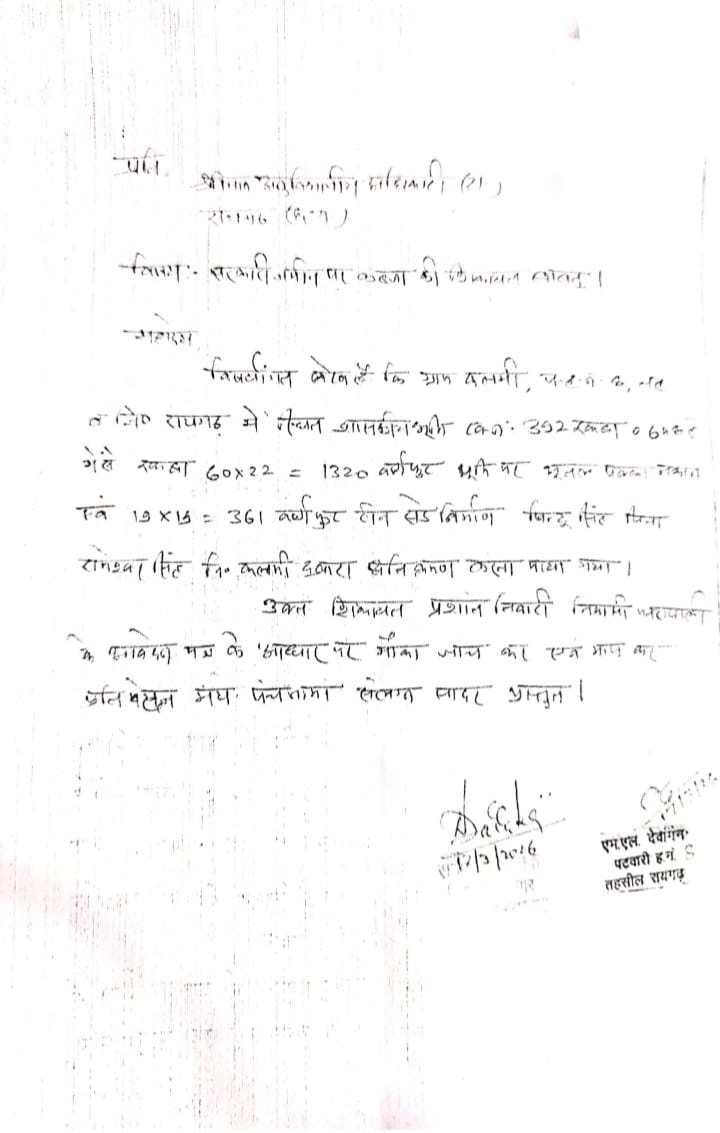 प्रति,
श्रीमान अनुविभागीय अधिकारी (रा)
रायगढ़ (छ.ग)
विषय:- सरकारी जमीन पर कब्जा की शिकायत बाबत्।
महोदय,
विषयांगत लेख है कि ग्राम कलमी, प.ह.न. तह
व जि० रायगढ़ में स्थित शासकीय भूमि ख.न. 392 रकबा
में से रकबा 60x22 = 1320 वर्गफुट भूमि पर भूतल पक्का मकान
एवं 19x19 = 361 वर्गफुट टीन सेड निर्माण पिन्टू सिंह पिता
रामेश्वर सिंह नि० कलमी द्वारा अतिक्रमण करना पाया गया।
उक्त शिकायत प्रशांत तिवारी निवासी
के आवेदन पत्र के आधार पर मौका जांच कर एवं माप कर
प्रतिवेदन मय पंचनामा संलग्न सादर प्रस्तुत।
एम.एल. देवांगन
पटवारी ह.नं. 8
तहसील रायगढ़